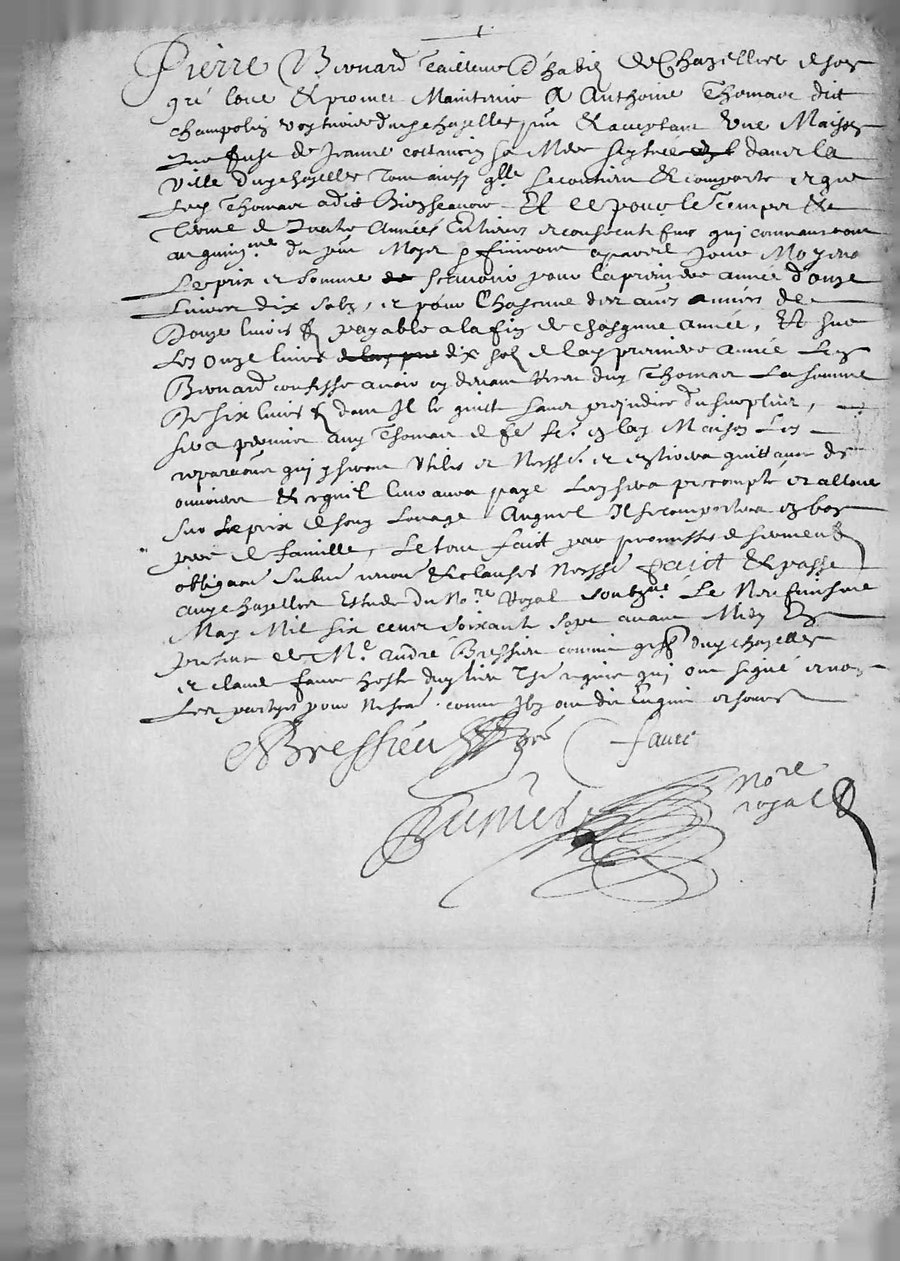 Pierre Berouard Tailleur d'habis de Chazelles de son
gré loue & promet Maintenir A Anthoine Thomas dit
champolin voyturier dud chazelles pnt & acceptant Une Maison
de Jeanne sa Mere scytuee dans la
Ville dud chazelles Tout ainsy qlle se contient & comporte et que
Led Thomas a dit Bien scavoir Et ce pour le temps &
Terme de Quatre Années Entieres & consecutives qui commanceront
au quinzme du pnt Mois & finiront a pareil Jour Moyenn
Le prix et somme scavoir pour la premiere année d'onze
Livres dix solz, et pour Chascune des aues années de
Douze livres payable a la fin de chasqune année, Et sur
Les Onze livres dix solz de lad premiere année Led
Berouard confesse avoir cy devant Receu dud Thomas La somme
De six livres dont Il le quitte sans prejudice du surplus,
sera permis aud Thomas de fe fe. en lad Maison Les
reparaons qui y seront Utiles et Necess.es et en tirera quittance des
ouvriers & ce quil leur aura payé Luy sera precompté et alloué
sur Le prix de son Louage Auquel Il se comportera en bon
pere de famille, Le tout faict par promesses de serment
obligaon Submi renon & clauses Necess. faict & passé
aud chazelles Estude du Nore Royal soubz.né Le Neufviesme
May Mil six cens soixante sept avant Midy En
presence de Me André Bressieu commis greff dud chazelles
et claude faure hoste dud lieu qui ont signé et non
Les partyes pour ne scavoir comme Ilz ont dit Enquis et sommes
ABressieu
faure
nore
royal